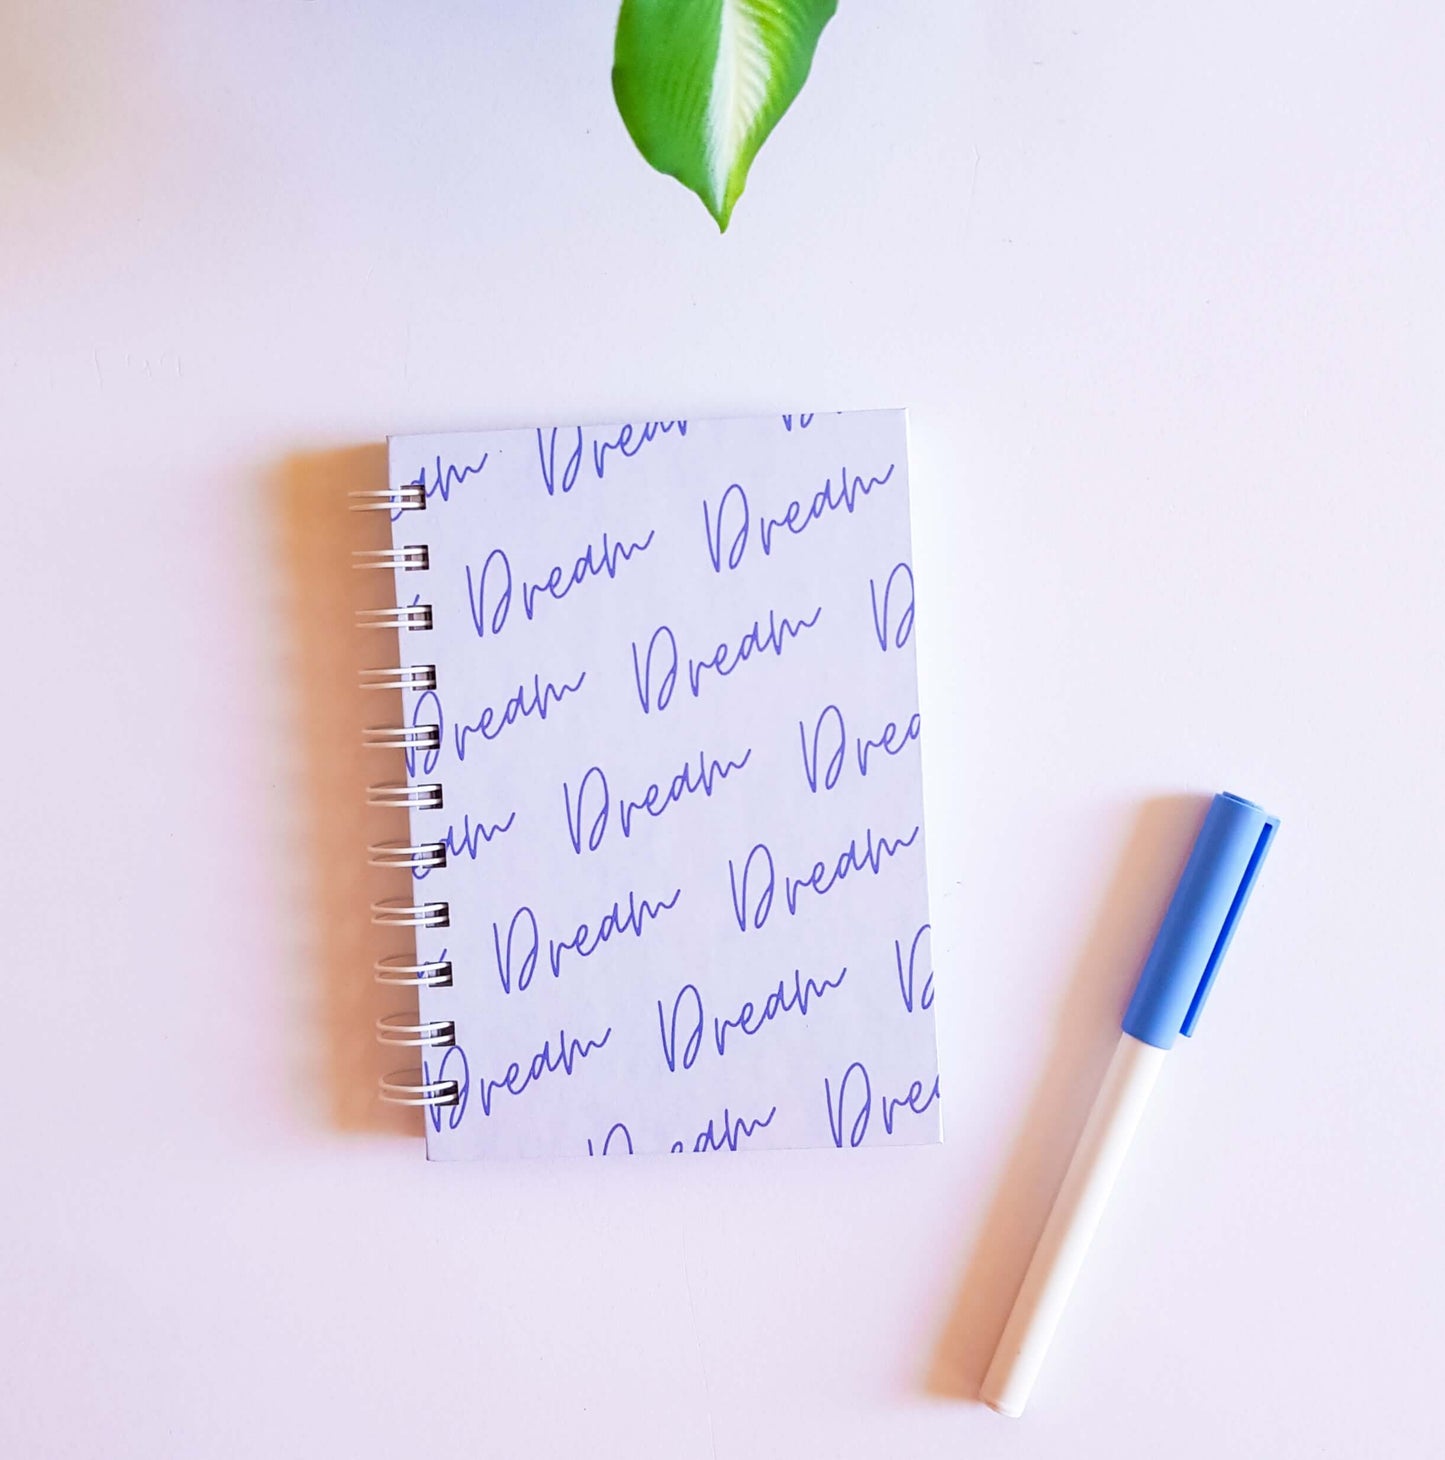 eam Dream
Dream Dream
Dream Dream D
eam Dream Drea
Dream Dream
Dream Dream D
Dream Dre